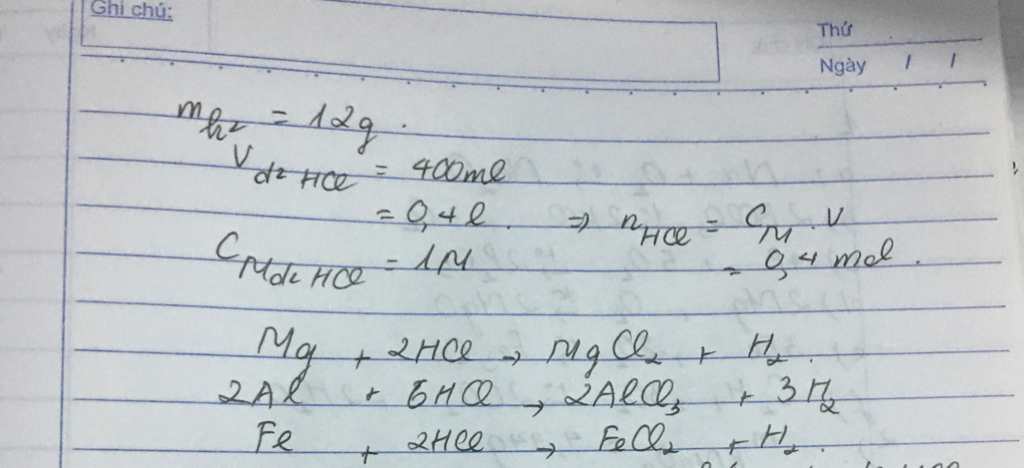 Ghi chú:
Thứ
Ngày / /
m_h² = 12g.
V_d² HCl = 400ml
= 0,4l. => n_HCl = C_M . V
C_M d² HCl = 1M = 0,4 mol.
Mg + 2HCl → MgCl₂ + H₂.
2Al + 6HCl → 2AlCl₃ + 3H₂
Fe + 2HCl → FeCl₂ + H₂.